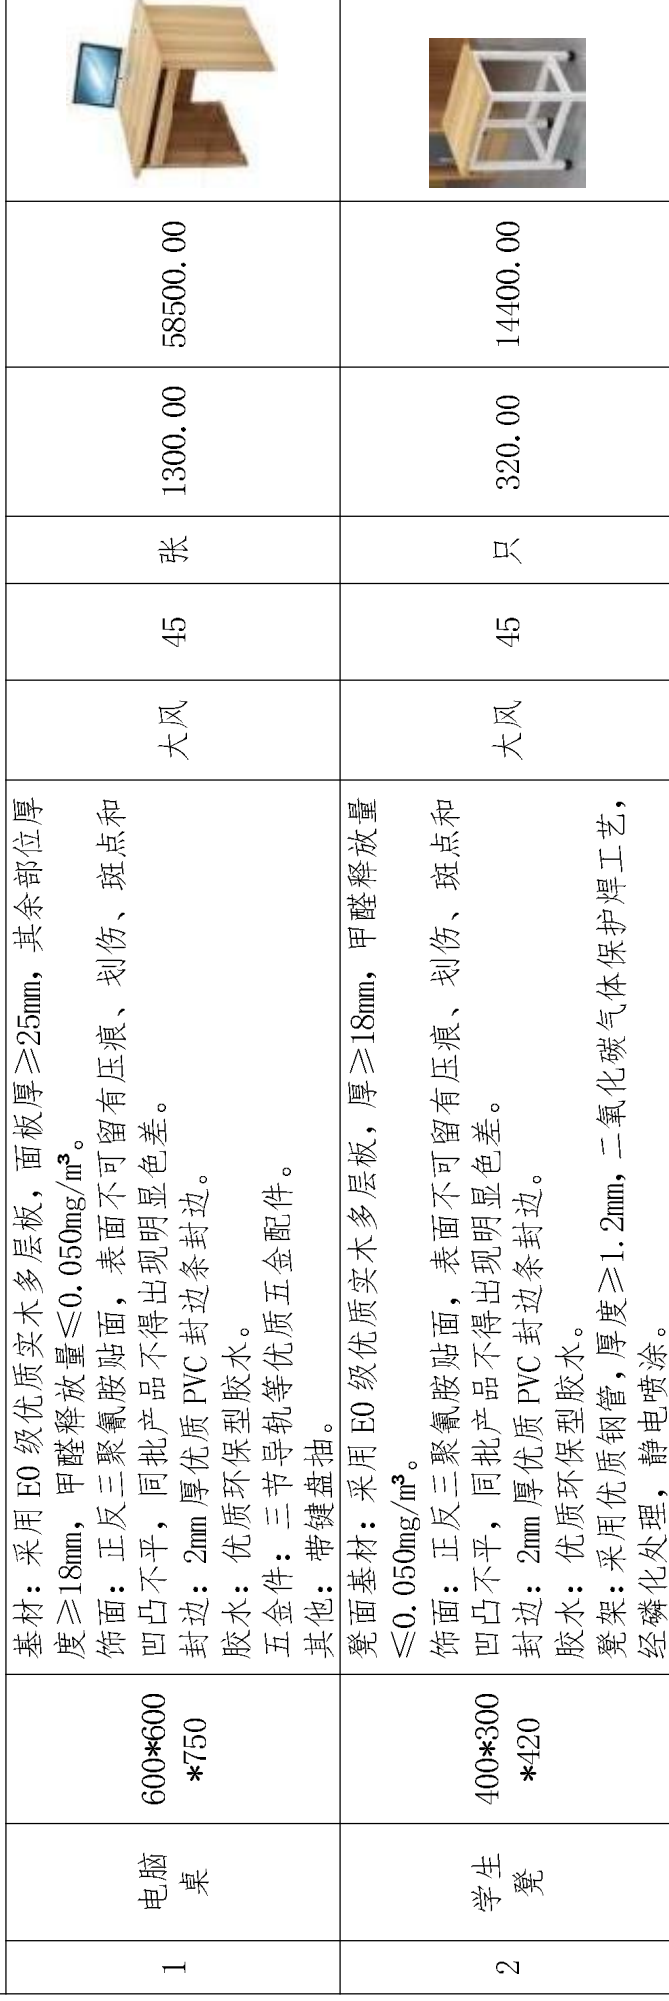 1
电脑
桌
600*600
*750
基材：采用 E0 级优质实木多层板，面板厚≥25mm，其余部位厚
度≥18mm，甲醛释放量≤0.050mg/m³。
饰面：正反三聚氰胺贴面，表面不可留有压痕、划伤、斑点和
凹凸不平，同批产品不得出现明显色差。
封边：2mm 厚优质 PVC 封边条封边。
胶水：优质环保型胶水。
五金件：三节导轨等优质五金配件。
其他：带键盘抽。
大风
45
张
1300.00
58500.00
2
学生
凳
400*300
*420
凳面基材：采用 E0 级优质实木多层板，厚≥18mm，甲醛释放量
≤0.050mg/m³。
饰面：正反三聚氰胺贴面，表面不可留有压痕、划伤、斑点和
凹凸不平，同批产品不得出现明显色差。
封边：2mm 厚优质 PVC 封边条封边。
胶水：优质环保型胶水。
凳架：采用优质钢管，厚度≥1.2mm，二氧化碳气体保护焊工艺，
经磷化处理，静电喷涂。
大风
45
只
320.00
14400.00